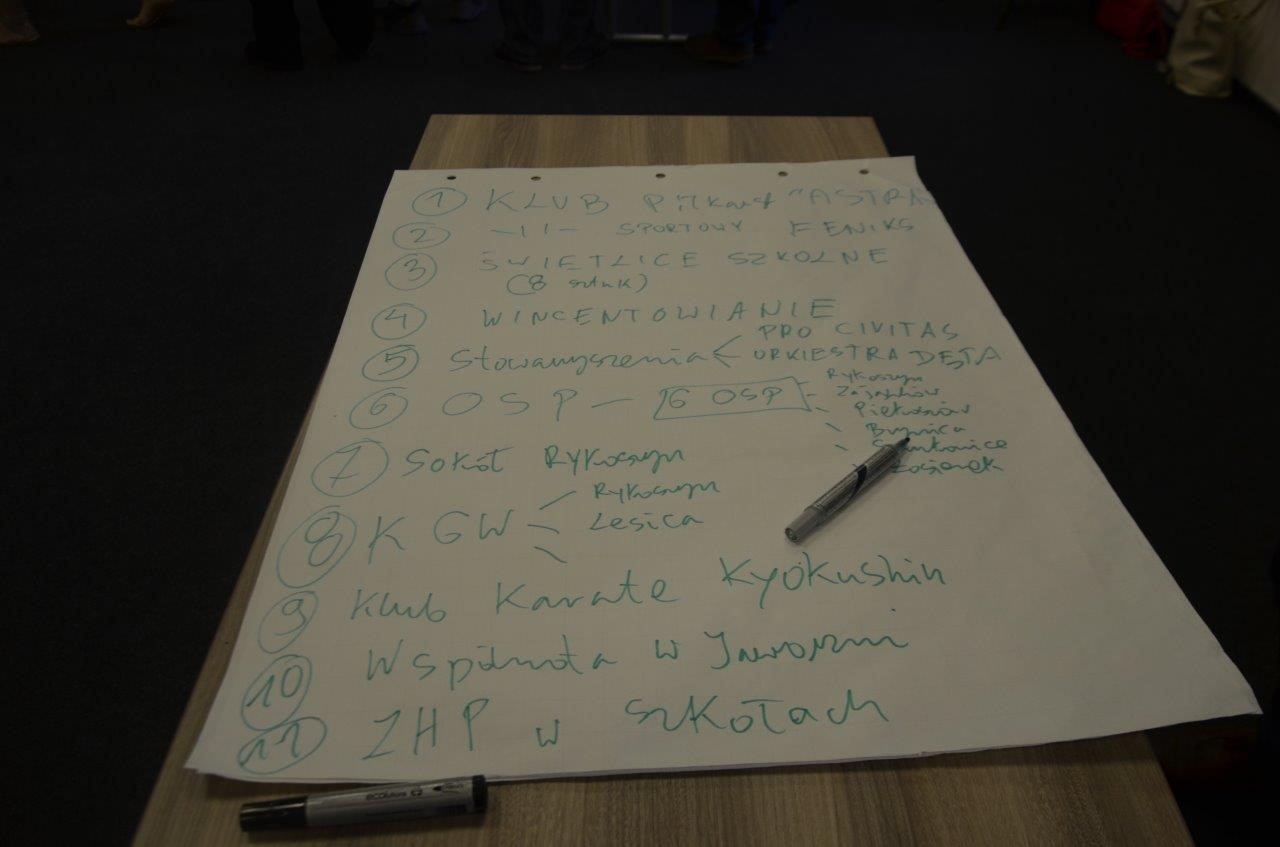 ① KLUB Piłkarst "ASTRA
② -II- SPORTOWY FENIKS
③ ŚWIETLICE SZKOLNE
(8 sztuk)
④ WINCENTOWIANIE
⑤ Stowarzyszenia < PRO CIVITAS
ORKIESTRA DĘTA
⑥ OSP — 6 OSP
Rykoszyn
Zajączków
Piekoszów
Brynica
⑦ Sokół Rykoszyn
⑧ KGW
Rykoszyn
Lesica
⑨ Klub Karate Kyokushin
⑩ Wspólnota w Jaworzni
⑪ ZHP w szkołach
ecolutions